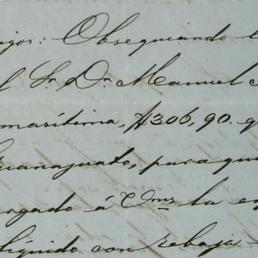 igos: Obsequiando l
l Sr. Dn. Manuel
marítima, $306,90. q
Guanajuato, para que
rgado á Vms la e
líquido con rebaja